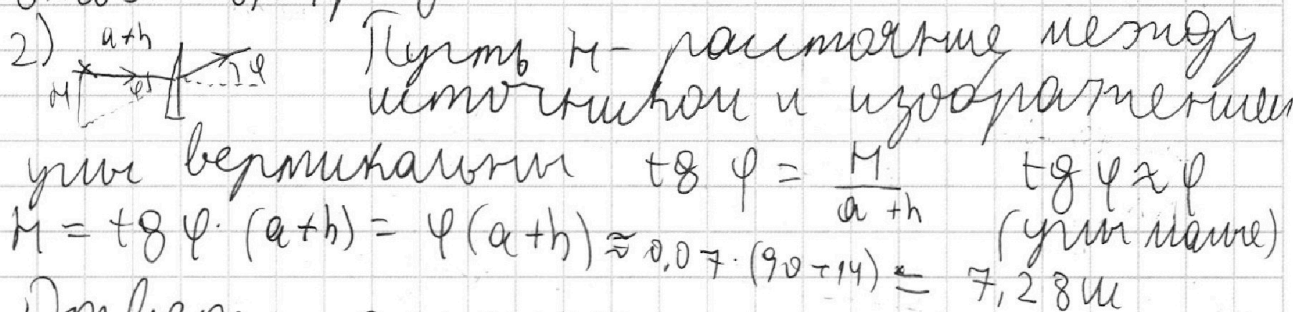 2) a+h H φ φ Пусть H - расстояние между
источником и изображением
углы вертикальны tg φ = H/(a+h) tg φ ≈ φ
H = tg φ · (a+h) = φ(a+h) ≈ 0,07 · (90+14) = 7,28 см
(углы малые)